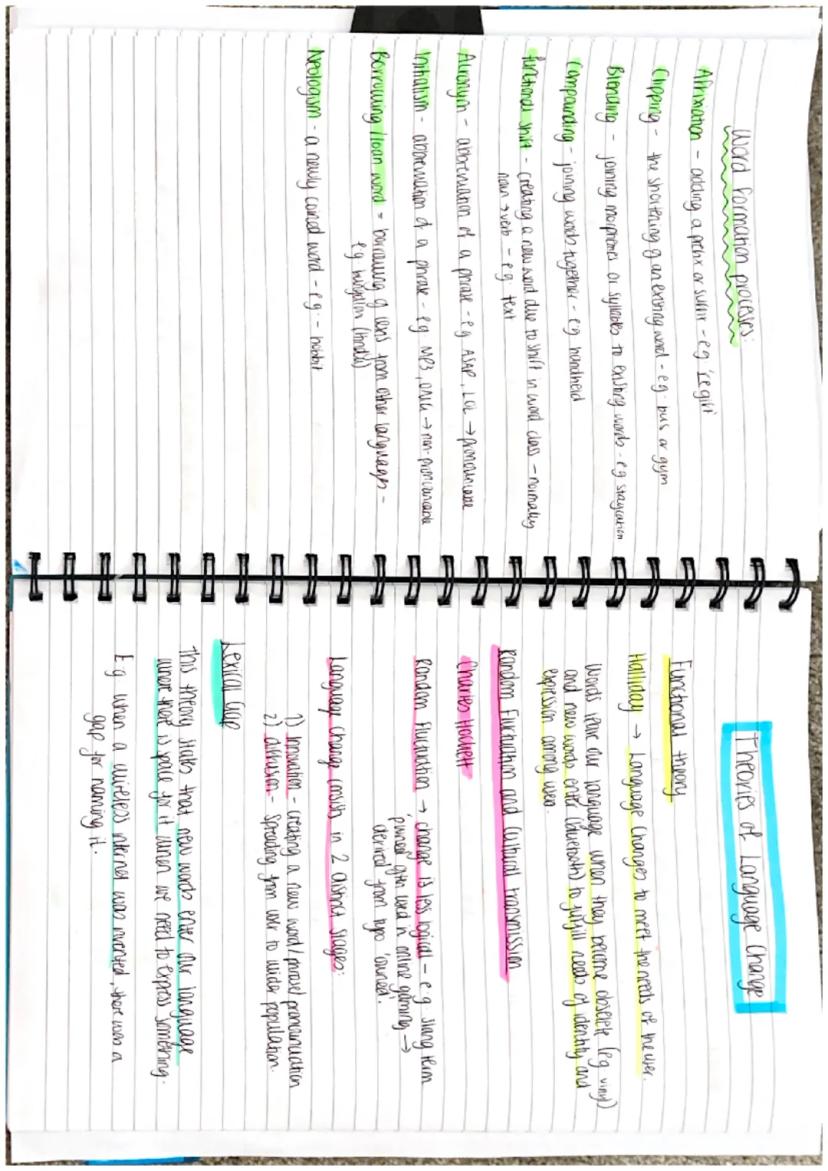 Word formation processes:
Affixation - adding a prefix or suffix - eg 're gift'
Clipping - the shortening of an existing word - e.g. bus or gym
Blending - joining morphemes or syllables to existing words - e.g staycation
Compounding - joining words together - e.g handheld
functional shift - creating a new word due to shift in word class - normally
noun → verb - e.g. text
Acronym - abbreviation of a phrase - e.g ASAP, LOL → pronounceable
Initialism - abbreviation of a phrase - eg MP3, → non-pronounceable
Borrowing / loan word = borrowing of from other languages -
e.g (hindi)
Neologism - a newly coined word - e.g. - hobbit
Theories of Language Change
Functional theory
Halliday → Language Changes to meet the needs of the user.
Words leave our language when they become obsolete (eg vinyl)
and new words enter to fulfill needs of identity and
expression among users.
Random Fluctuation and Cultural transmission
Charles Hockett
Random Fluctuation → change is less logical - e.g. slang term
'pwned' often used in online gaming →
derived from typo 'owned'.
Language Change in 2 distinct stages:
1) Innovation - creating a new word/phrase/pronunciation
2) diffusion - spreading from user to wider population.
Lexical Gap
This theory states that new words enter our language
when there is space for it when we need to express something.
E.g when a wireless internet was invented, there was a
gap for naming it.